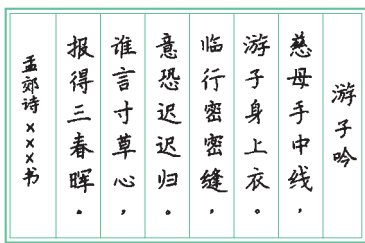 游子吟
慈母手中线，
游子身上衣。
临行密密缝，
意恐迟迟归。
谁言寸草心，
报得三春晖。
孟郊诗×××书